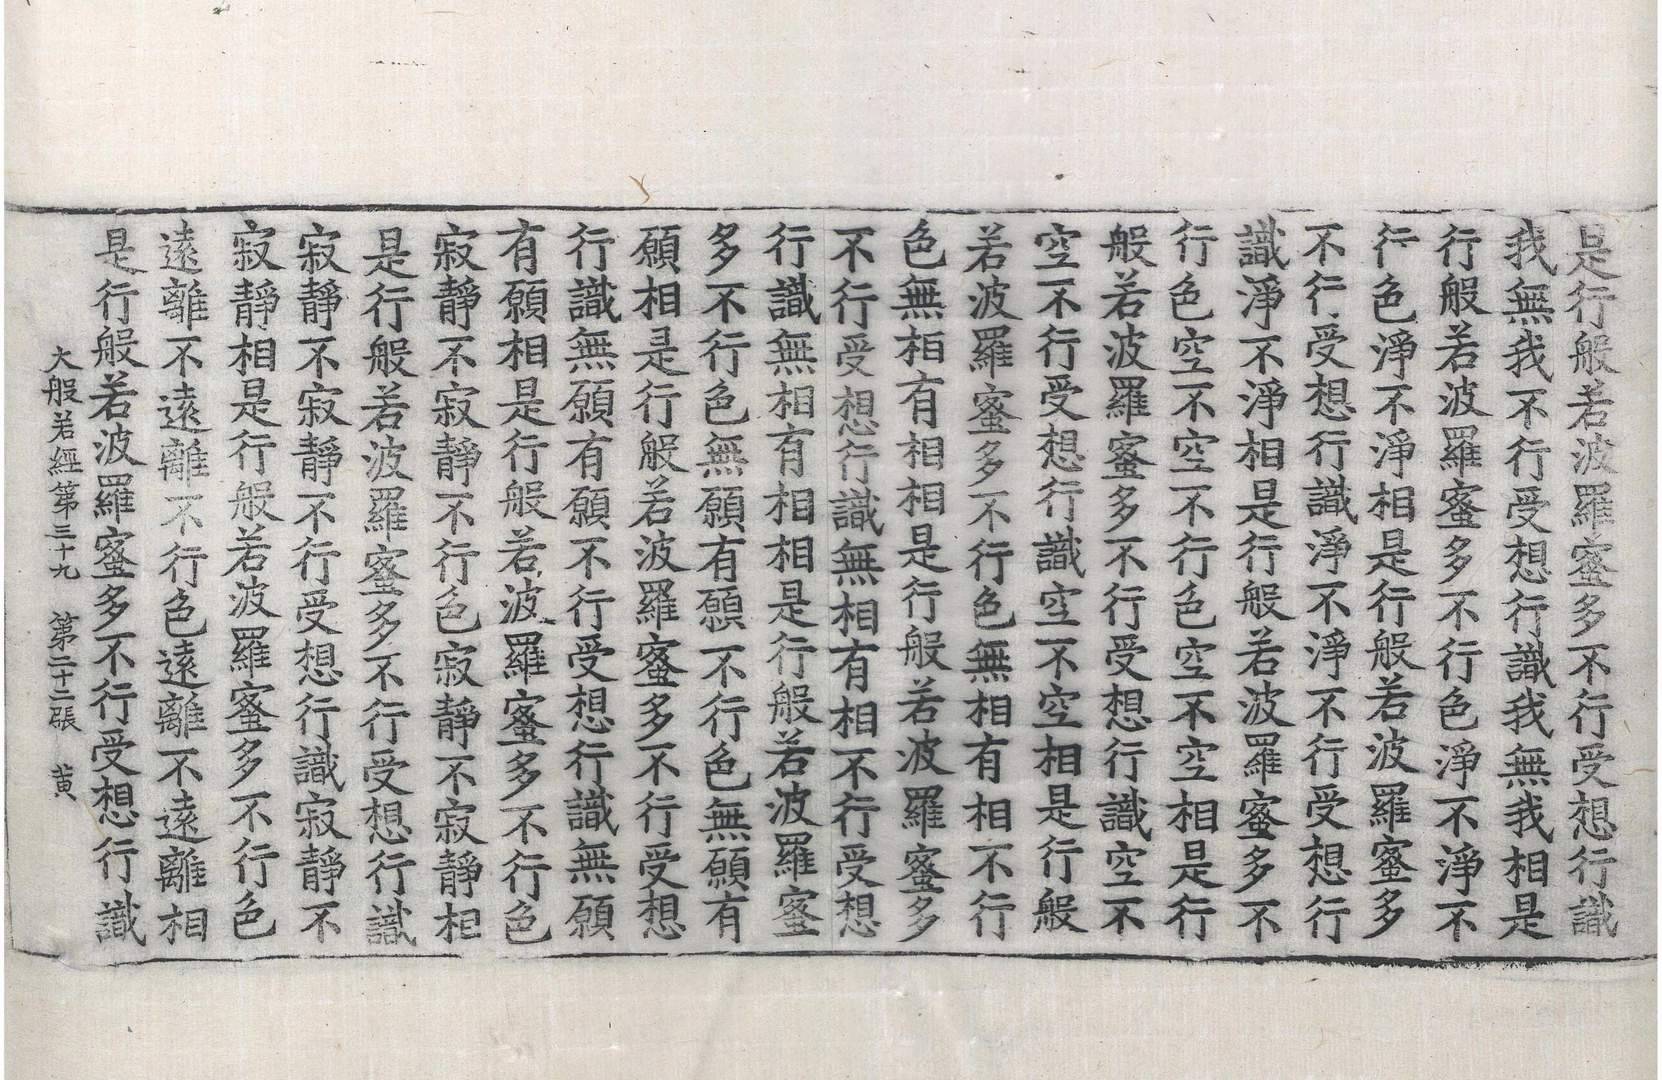 是行般若波羅蜜多不行受想行識
我無我不行受想行識我無我相是
行般若波羅蜜多不行色淨不淨不
行色淨不淨相是行般若波羅蜜多
不行受想行識淨不淨不行受想行
識淨不淨相是行般若波羅蜜多不
行色空不空不行色空不空相是行
般若波羅蜜多不行受想行識空不
空不行受想行識空不空相是行般
若波羅蜜多不行色無相有相不行
色無相有相相是行般若波羅蜜多
不行受想行識無相有相不行受想
行識無相有相相是行般若波羅蜜
多不行色無願有願不行色無願有
願相是行般若波羅蜜多不行受想
行識無願有願不行受想行識無願
有願相是行般若波羅蜜多不行色
寂靜不寂靜不行色寂靜不寂靜相
是行般若波羅蜜多不行受想行識
寂靜不寂靜不行受想行識寂靜不
寂靜相是行般若波羅蜜多不行色
遠離不遠離不行色遠離不遠離相
是行般若波羅蜜多不行受想行識
大般若經第三十九 第二十二張 黃